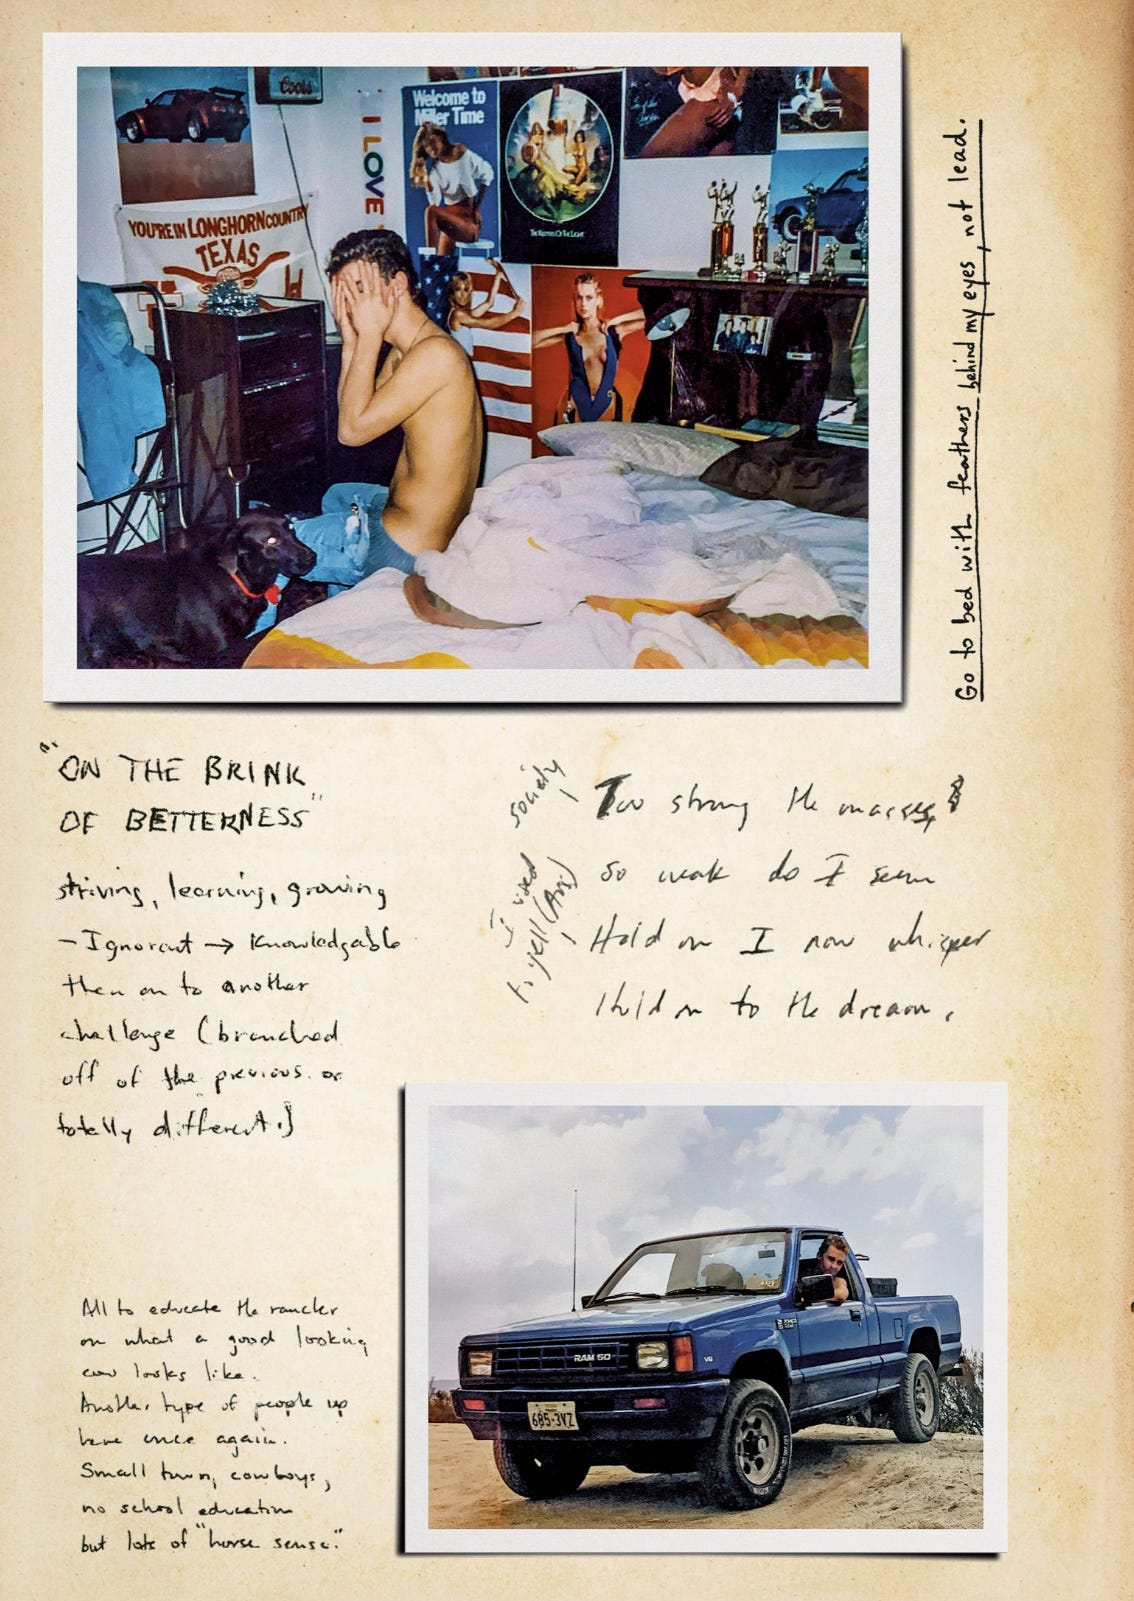 Coors
Welcome to
Miller Time
I LOVE
YOU'RE IN LONGHORN COUNTRY
TEXAS
THE KEEPERS OF THE LIGHT
Go to bed with feathers behind my eyes, not lead.
"ON THE BRINK
OF BETTERNESS"
striving, learning, growing
- Ignorant → Knowledgable
then on to another
challenge (branched
off of the previous or
totally different.)
society
Too strong the masses,
so weak do I seem
I used
to yell (Ani)
Hold on I now whisper
Hold on to the dream.
All to educate the rancher
on what a good looking
cow looks like.
Another type of people up
here once again.
Small town, cowboys,
no school education
but lots of "horse sense."
RAM 50
V6
685-3VZ